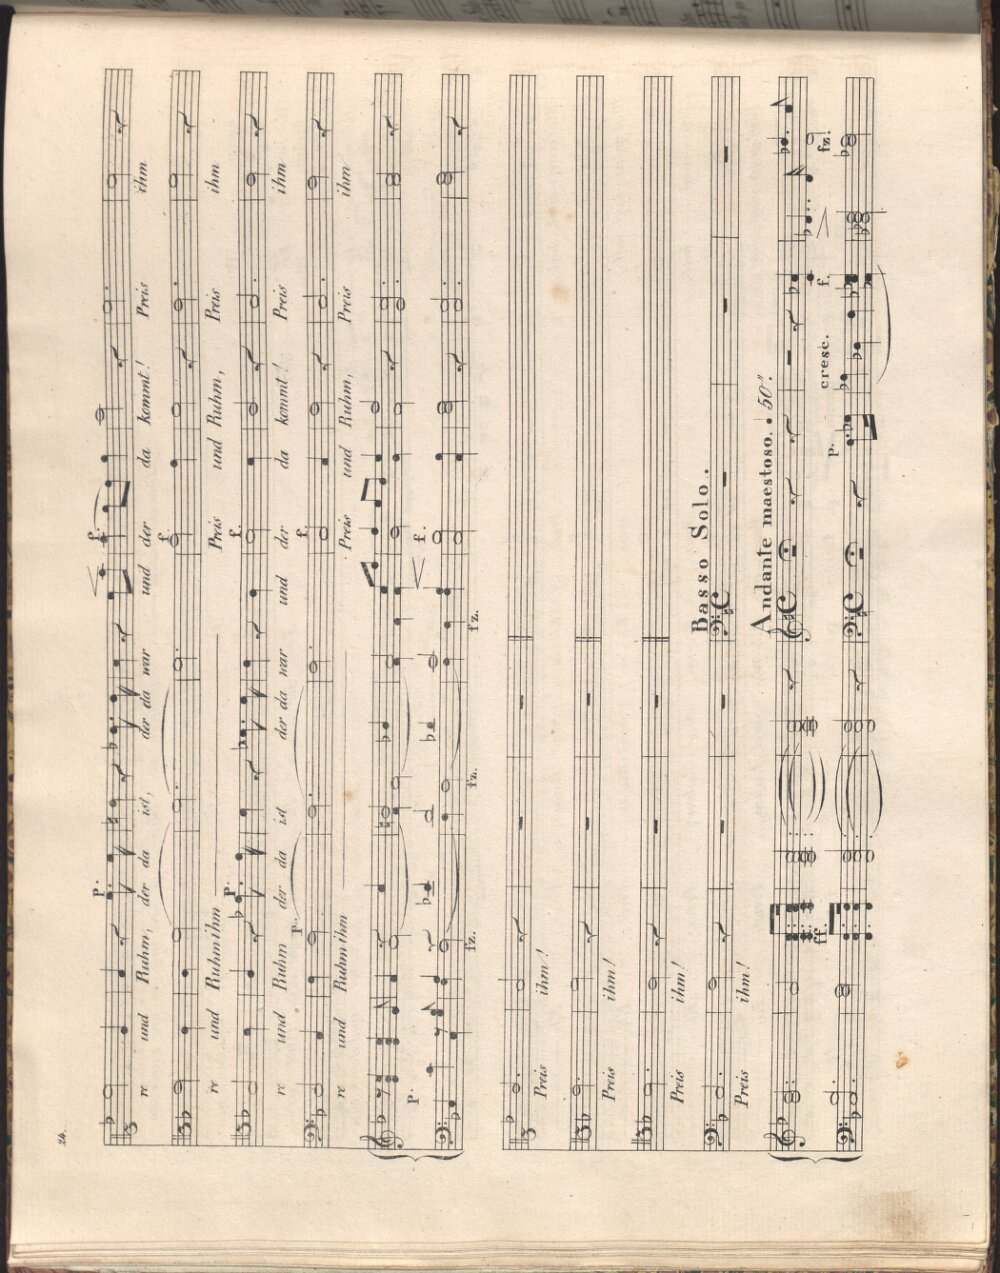 24.
p. f.
re und Ruhm, der da ist, der da war und der da kommt! Preis ihm
f.
re und Ruhm ihm Preis und Ruhm, Preis ihm
p. f.
re und Ruhm der da ist der da war und der da kommt! Preis ihm
p. f.
re und Ruhm ihm Preis und Ruhm, Preis ihm
p. f.
fz. fz. fz.
Preis ihm!
Preis ihm!
Preis ihm!
Basso Solo.
Preis ihm!
Andante maestoso. 50".
ff. p. cresc. f. fz.